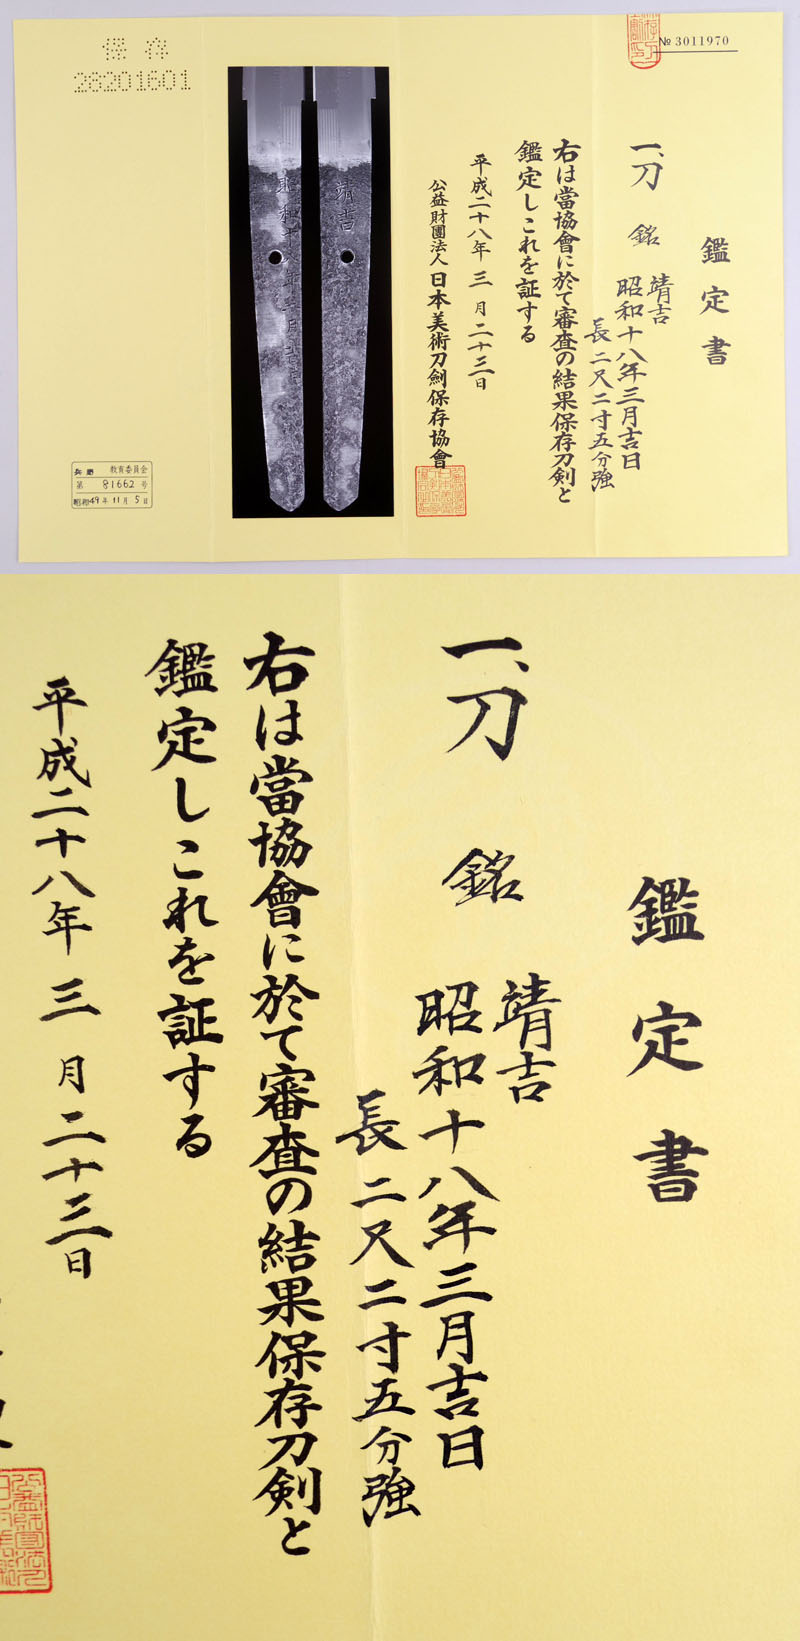 № 3011970
鑑定書
一、刀 銘 靖吉
昭和十八年三月吉日
長二尺二寸五分強
右は當協會に於て審査の結果保存刀剣と
鑑定しこれを証する
平成二十八年三月二十三日
公益財團法人日本美術刀劍保存協會
靖吉
昭和十八年三月吉日
保存
28201601
兵庫 教育委員会
第 81662 号
昭和49年11月5日
鑑定書
一、刀 銘 靖吉
昭和十八年三月吉日
長二尺二寸五分強
右は當協會に於て審査の結果保存刀剣と
鑑定しこれを証する
平成二十八年三月二十三日